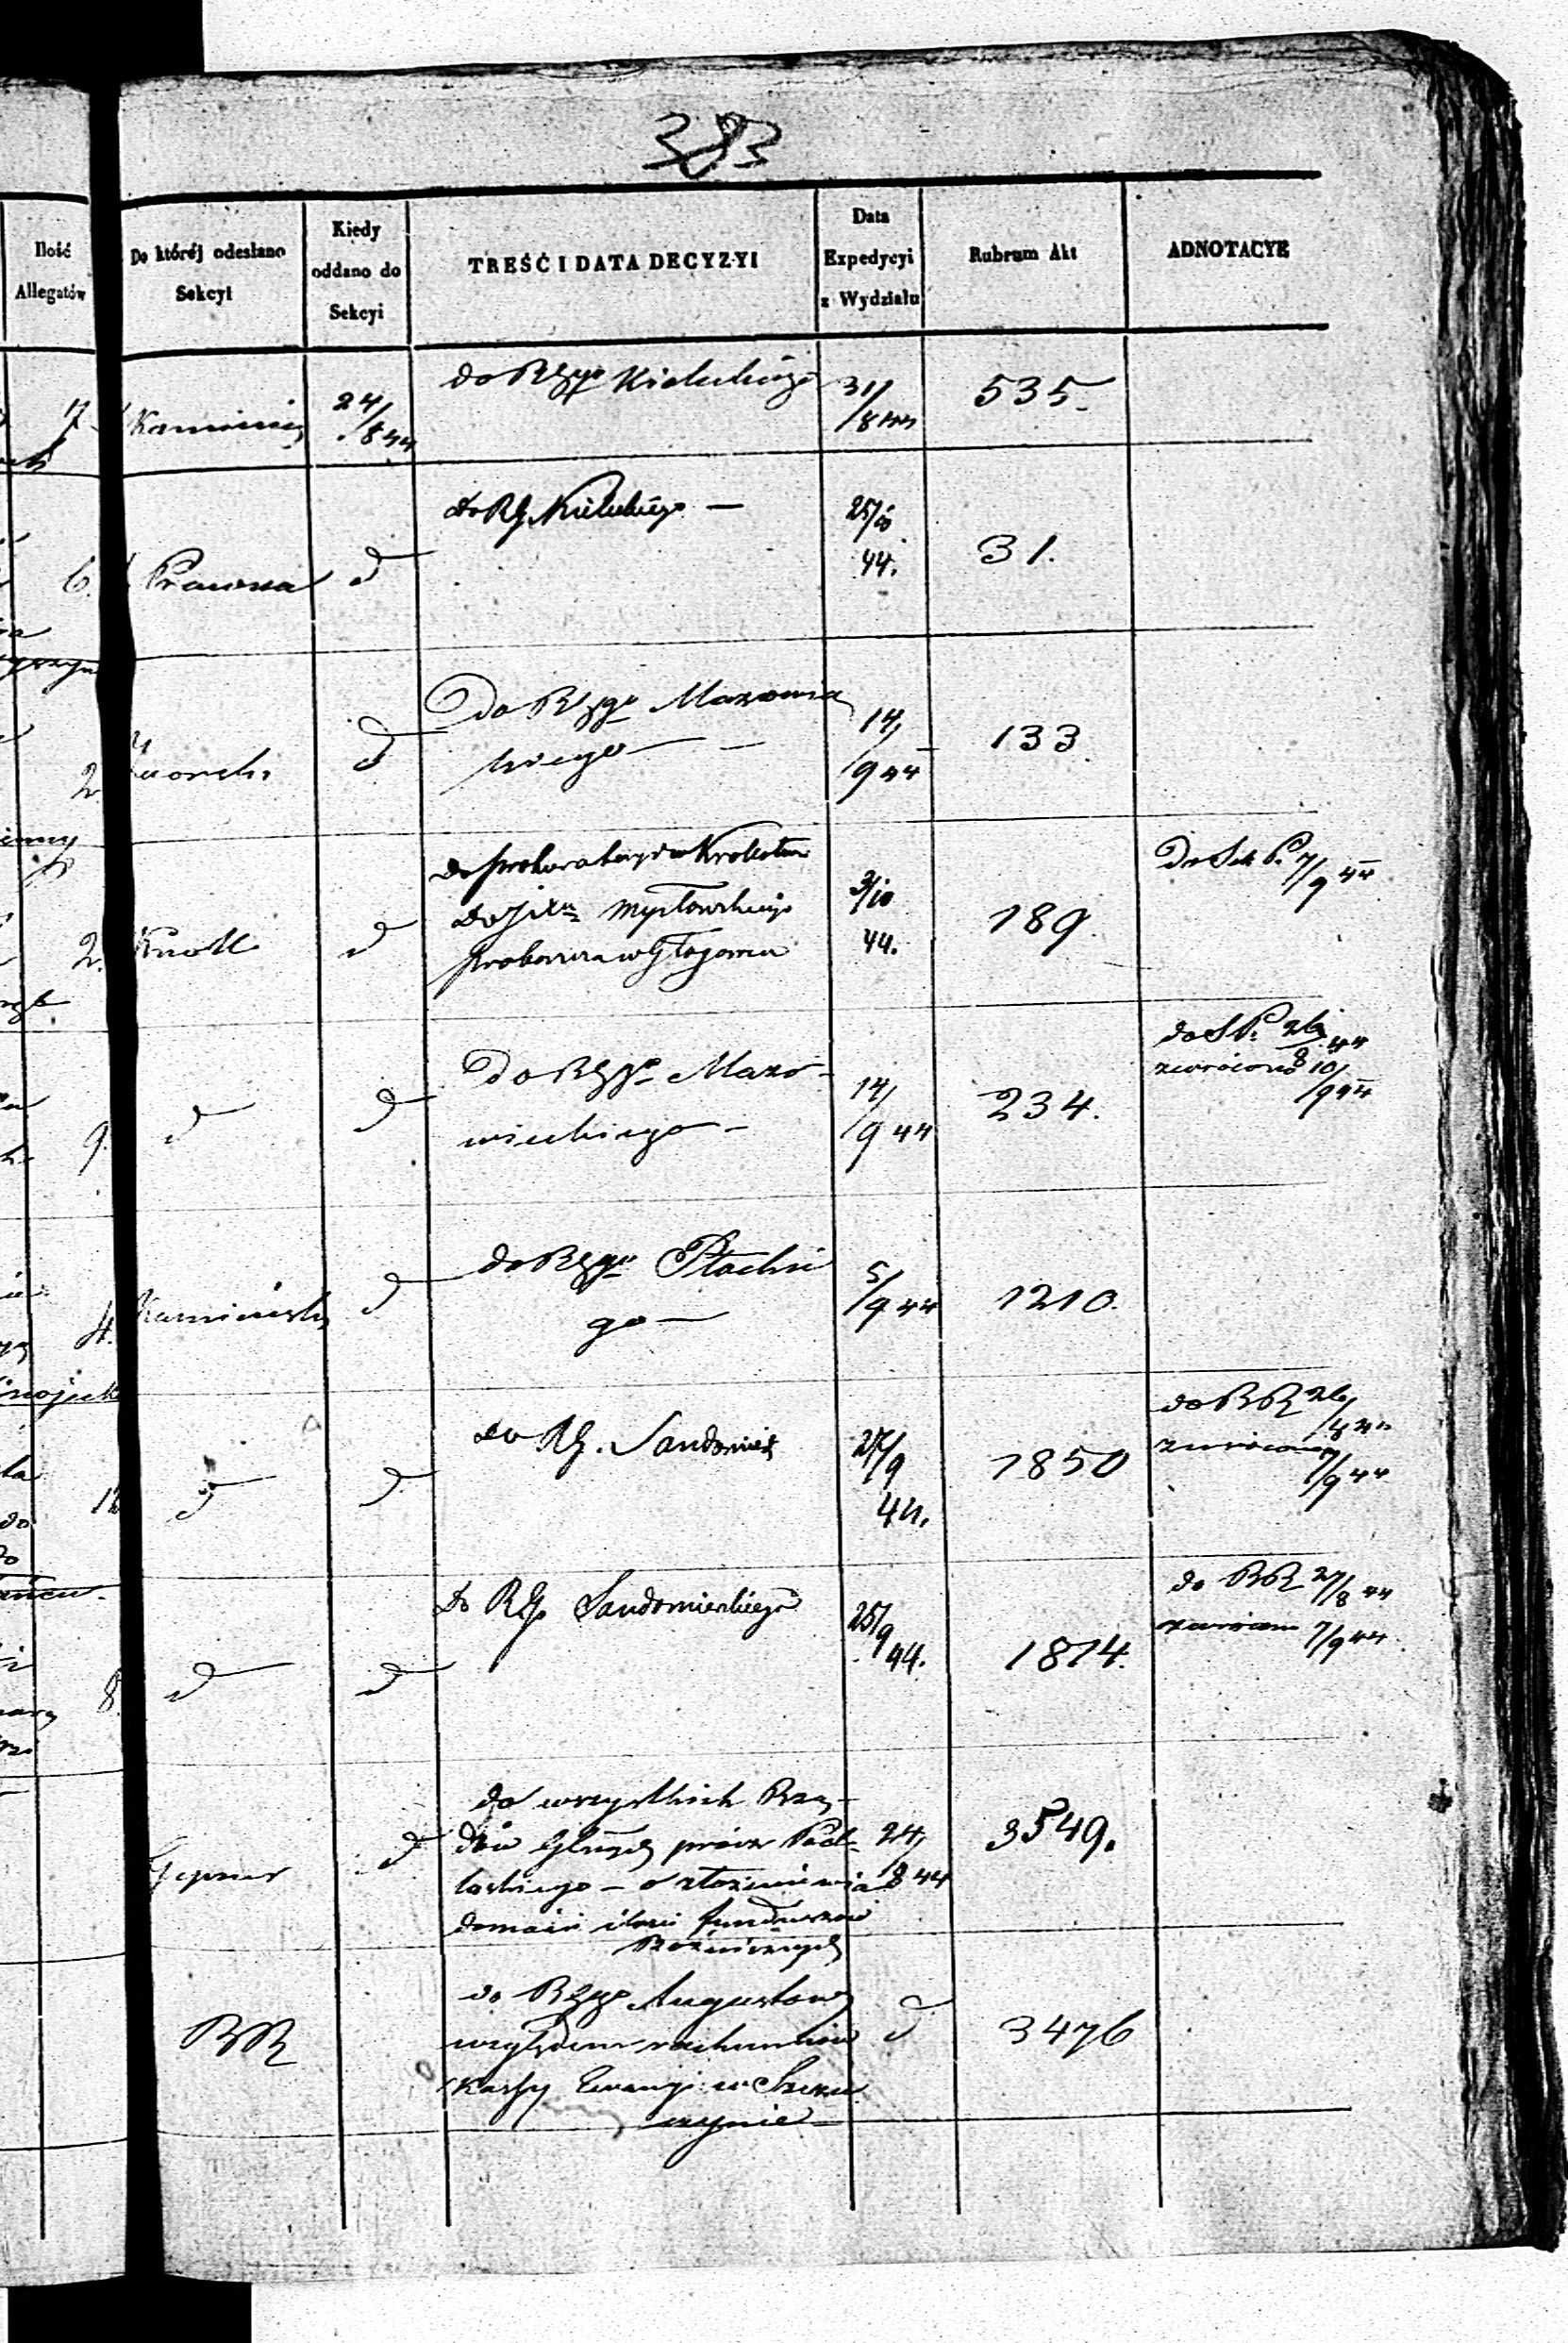 383
Ilość
Allegatów
Do któréj odesłano
Sekcyi
Kiedy
oddano do
Sekcyi
TREŚĆ I DATA DECYZYI
Data
Expedycyi
z Wydziału
Rubrum Akt
ADNOTACYE
24/8 44
do Rząo Kieleckiego
31/8 44
535.
6.
Prawna
d
do RG. Kieleckiego —
25/10
44.
31.
2
d
Do Rzgo Mazowiec
kiego —
14/9 44
133
2.
Knoll
d
do prokuratoryi w
Do Jxa Mysłowskiego
proboszcza w Głogowcu
3/10
44.
189.
Do Sek P. 7/9 44
9.
d
d
Do Rzgo Mazo-
wieckiego —
14/9 44
234.
do S P. 26/8 44
zwrócono 10/9 44
4.
Kamiński
d
do Rzgo Płockie
go —
5/9 44
1210.
d
d
do RG. Sandomier
27/9
44.
1850
do RR 26/8 44
zwrócono 7/9 44
8.
d
d
Do RGo Sandomierskiego
25/9 44.
1814.
do RR 27/8 44
zwrócono 7/9 44
Gepner
d
do wszystkich Rzą-
dów Gbńych prócz Pod-
laskiego — o złożenie wia
domości ilości funduszów
24/8 44
3549.
RR
do Rzgo Augustow
względem rachunków
Kassy Ewangi: w Szczu
czynie —
d
3476